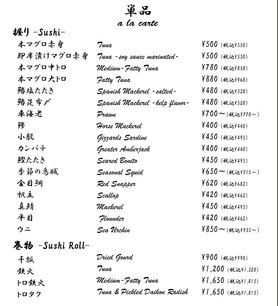 単品
a la carte
握り -Sushi-
本マグロ赤身 Tuna ¥500 (税込¥550)
即席漬けマグロ赤身 Tuna -soy sauce marinated- ¥500 (税込¥550)
本マグロ中トロ Medium-Fatty Tuna ¥780 (税込¥858)
本マグロ大トロ Fatty Tuna ¥880 (税込¥968)
鰆塩たたき Spanish Mackerel -salted- ¥480 (税込¥528)
鰆昆布〆 Spanish Mackerel -kelp flavor- ¥480 (税込¥528)
車海老 Prawn ¥700～ (税込¥770～)
鯵 Horse Mackerel ¥400 (税込¥440)
小肌 Gizzards Sardine ¥450 (税込¥495)
カンパチ Greater Amberjack ¥400 (税込¥440)
鰹たたき Seared Bonito ¥450 (税込¥495)
季節の烏賊 Seasonal Squid ¥650～ (税込¥715～)
金目鯛 Red Snapper ¥620 (税込¥682)
帆立 Scallop ¥420 (税込¥462)
真鯖 Mackerel ¥450 (税込¥495)
平目 Flounder ¥420 (税込¥462)
ウニ Sea Urchin ¥850～ (税込¥935～)
巻物 -Sushi Roll-
干瓢 Dried Gourd ¥900 (税込¥990)
鉄火 Tuna ¥1,200 (税込¥1,320)
トロ鉄火 Medium-Fatty Tuna ¥1,650 (税込¥1,815)
トロタク Tuna & Pickled Daikon Radish ¥1,650 (税込¥1,815)